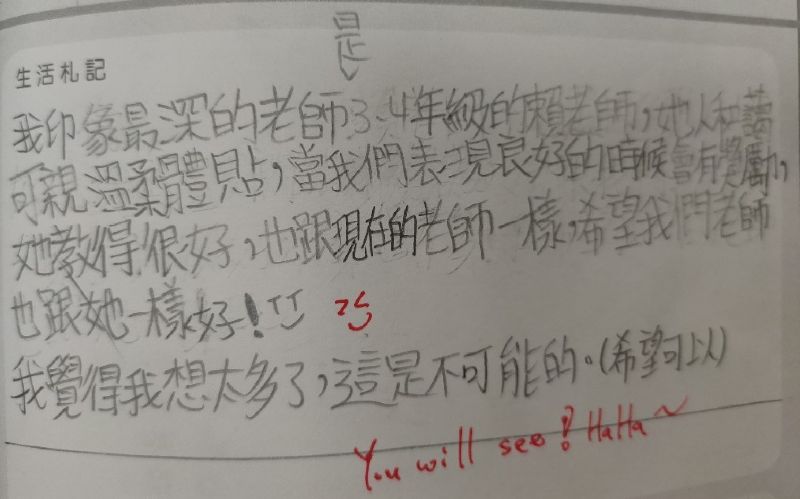 生活札記
是
我印象最深的老師3、4年級的賴老師，她人和藹
可親溫柔體貼，當我們表現良好的時候會有獎勵，
她教得很好，也跟現在的老師一樣，希望我們老師
也跟她一樣好！
我覺得我想太多了，這是不可能的。(希望可以)
You will see! HaHa~